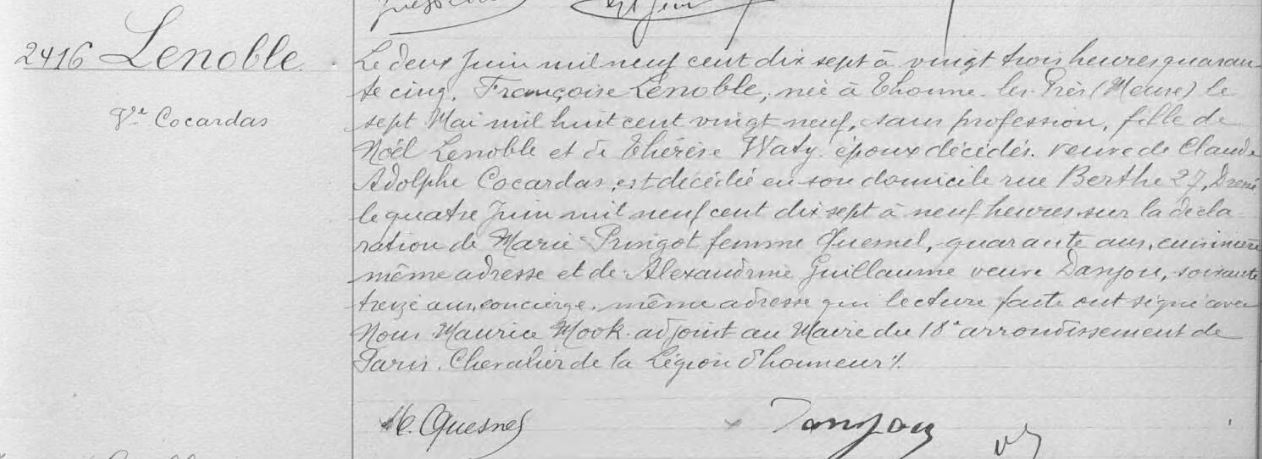 2416 Lenoble
Vve Cocardas
Le deux Juin mil neuf cent dix sept à vingt trois heures quaran
te cinq, Françoise Lenoble, née à Thonne-les-Près (Meuse) le
sept Mai mil huit cent vingt neuf, sans profession, fille de
Noël Lenoble et de Thérèse Waty époux décédés. veuve de Claude
Adolphe Cocardas, est décédée en son domicile rue Berthe 27, Dressé
le quatre Juin mil neuf cent dix sept à neuf heures sur la décla
ration de Marie Pringot femme Quesnel, quarante ans, cuisinière
même adresse et de Alexandrine Guillaume veuve Danjou, soixante
treize ans, concierge, même adresse qui lecture faite ont signé avec
Nous Maurice Mook adjoint au Maire du 18e arrondissement de
Paris. Chevalier de la Légion d'honneur ./.
M. Quesnel
Danjou